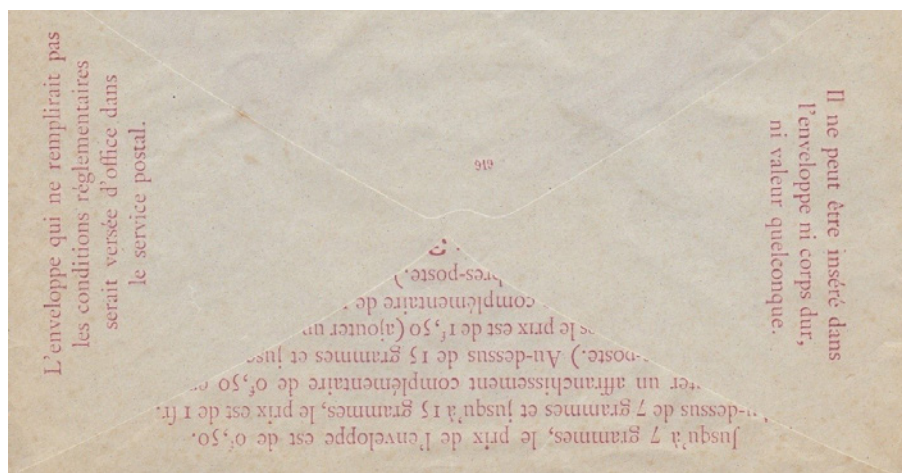 L'enveloppe qui ne remplirait pas
les conditions réglementaires
serait versée d'office dans
le service postal.
Il ne peut être inséré dans
l'enveloppe ni corps dur,
ni valeur quelconque.
Jusqu'à 7 grammes, le prix de l'enveloppe est de 0f,50.
u-dessus de 7 grammes et jusqu'à 15 grammes, le prix est de 1 fr.
ter un affranchissement complémentaire de 0f,50
-poste.) Au-dessus de 15 grammes et jusq
es le prix est de 1f,50 (ajouter un
complémentaire de
bres-poste.)